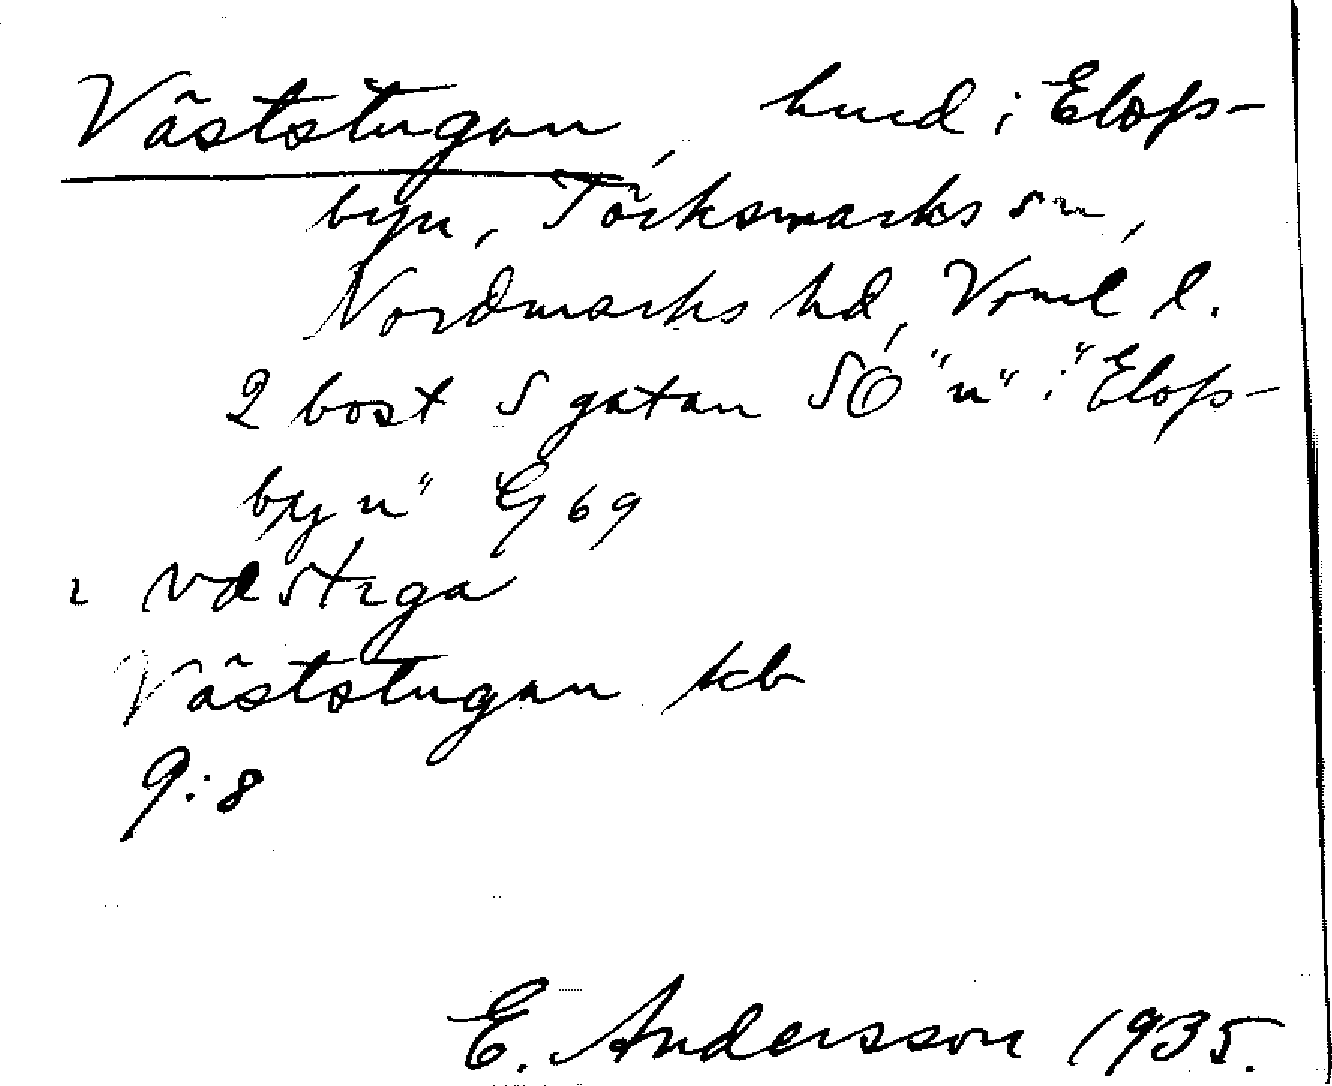 Väststugan, hmd i Elofs-
byn, Töcksmarks sn,
Nordmarks hd, Vrml l.
2 bost S gatan SÖ "n" i "Elofs-
byn" G 69
västzga
Väststugan kb
9:8
E. Andersson 1935.